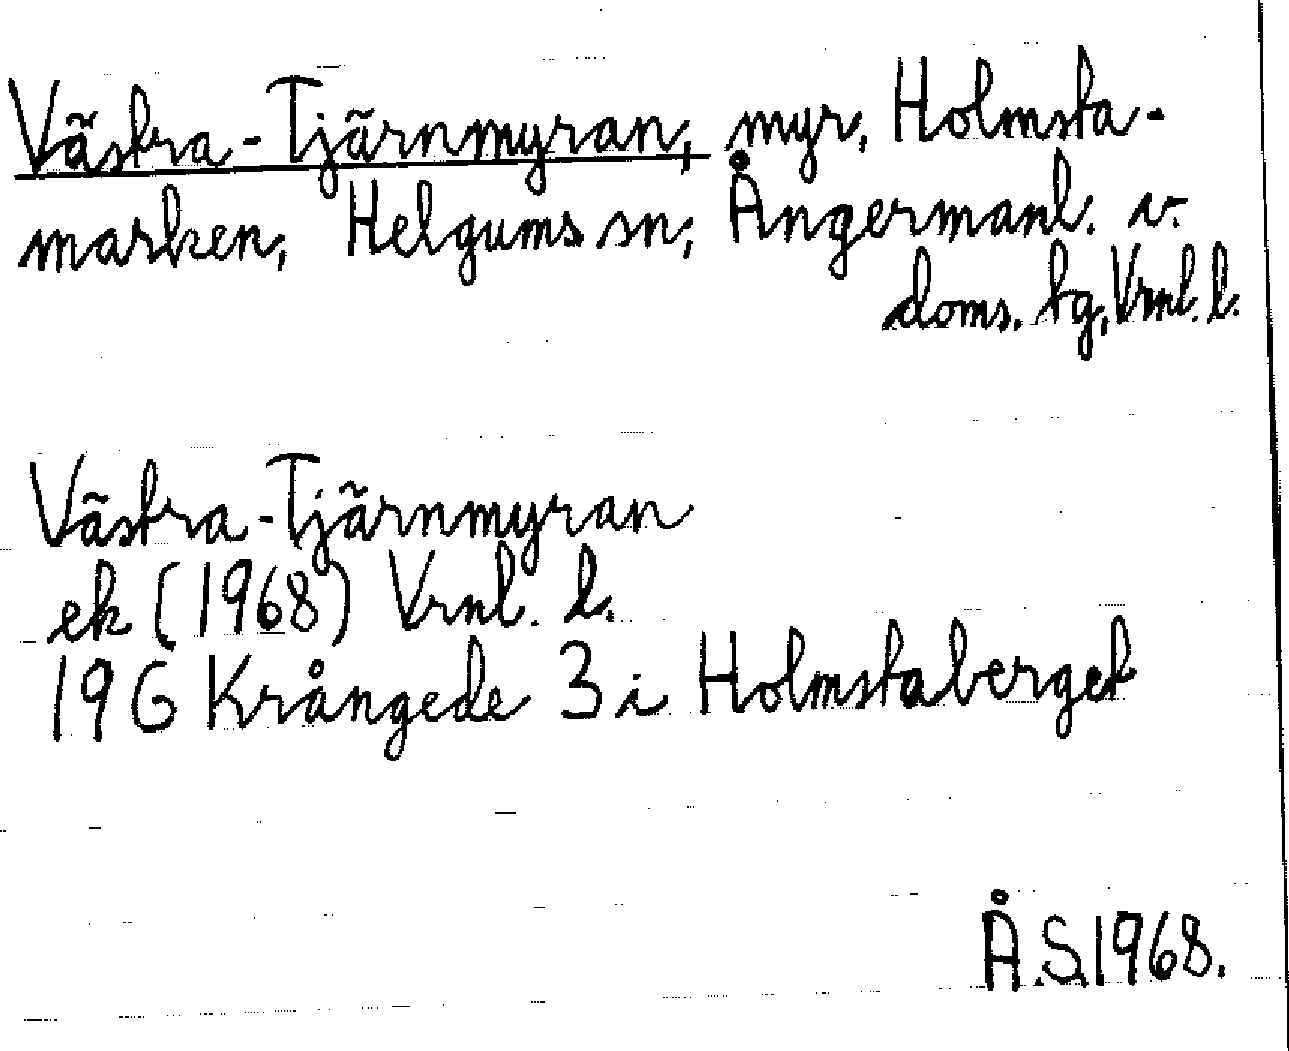 Västra-Tjärnmyran, myr, Holmsta-
marken, Helgums sn, Ångermanl. v.
doms. tg, Vrnl. l.
Västra-Tjärnmyran
ek (1968) Vrnl. l.
19 G Krångede 3 i Holmstaberget
Å.S. 1968.